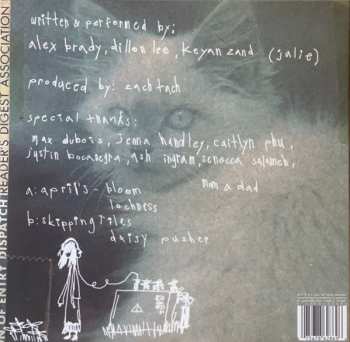 written & performed by;
alex brady, dillon lee, keyan zand (jalie)
produced by: zach tach
special thanks:
max dubois, jenna handley, caitlyn phu,
justin bocanegra, ash ingram, senecca salameh,
mom & dad
a: april's - bloom
lochness
b: skipping tiles
daisy pusher
N, OF ENTRY DISPATCH READER'S DIGEST ASSOCIATION